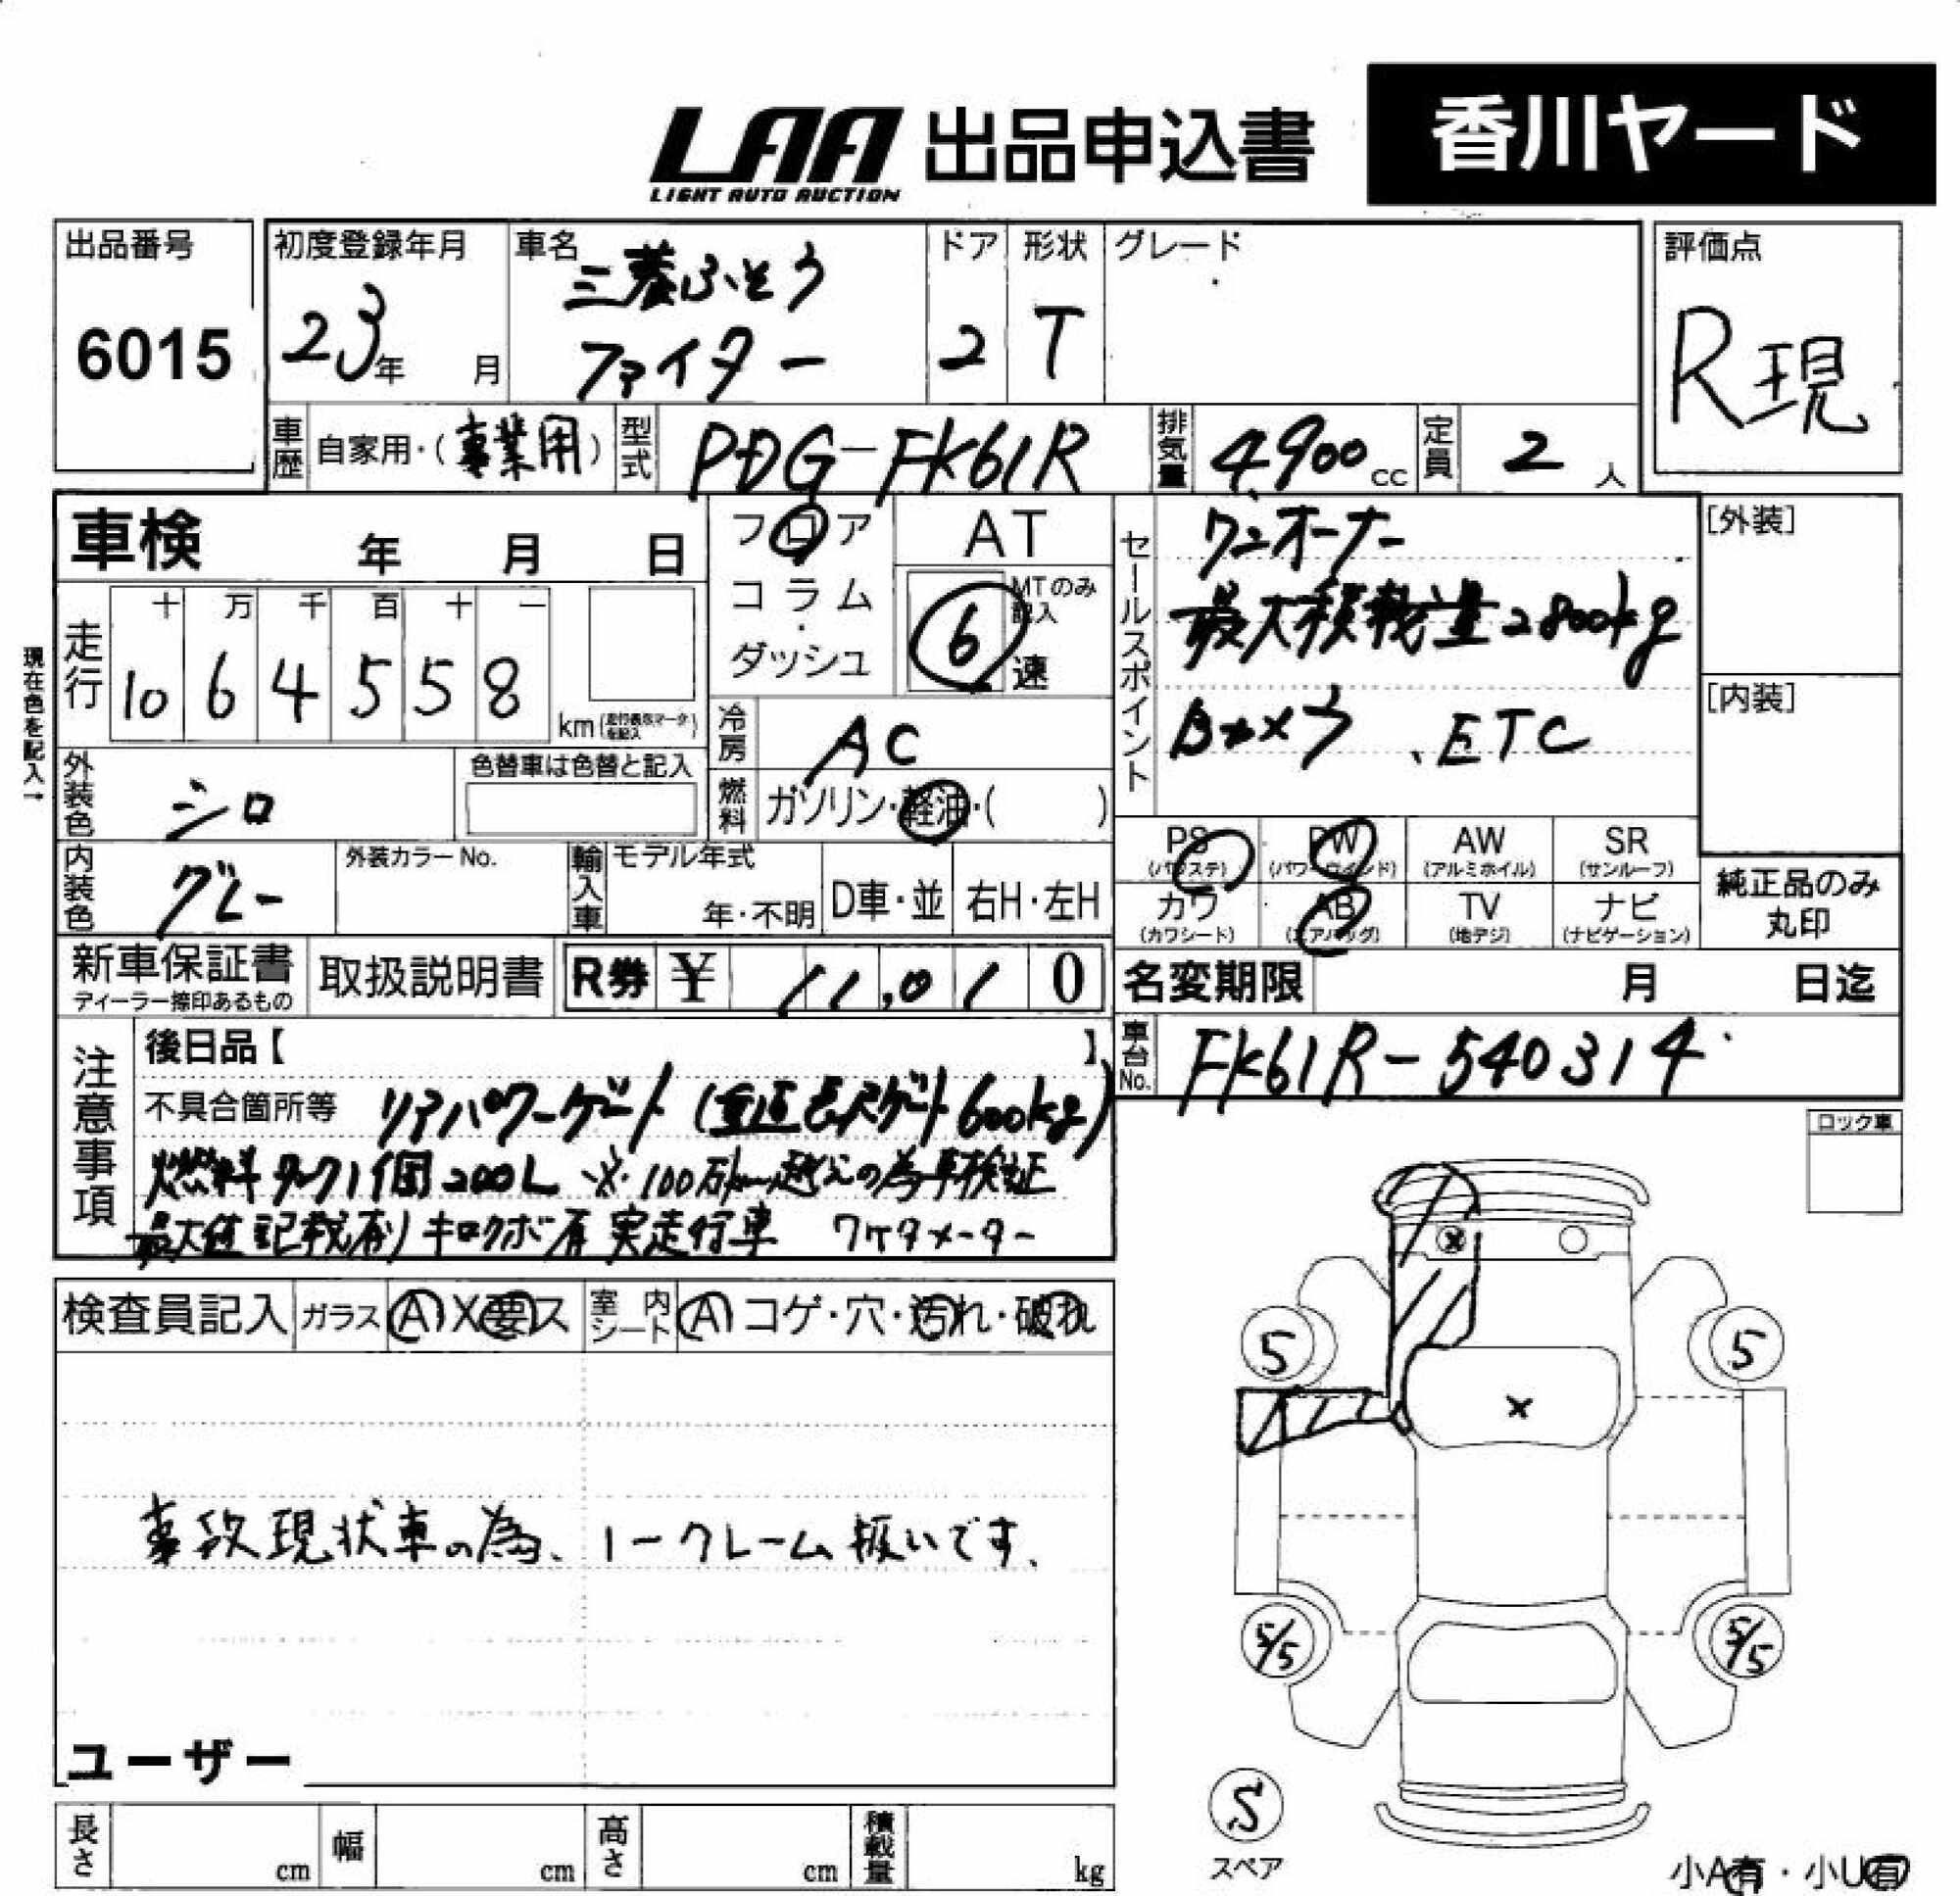 LAA
LIGHT AUTO AUCTION
出品申込書
香川ヤード
出品番号
6015
初度登録年月
23年 月
車名
三菱ふそう
ファイター
ドア
2
形状
T
グレード
評価点
R現
車歴 自家用・(事業用)
型式 PDG-FK61R
排気量 4,900cc
定員 2人
車検 年 月 日
フロア
コラム
ダッシュ
AT
MTのみ記入
6速
セールスポイント
ワンオーナー
最大積載量2800kg
Bカメラ、ETC
[外装]
[内装]
現在色を記入→
走行
十 万 千 百 十 一
10 6 4 5 5 8
km(走行表示マークを記入)
冷房 AC
燃料 ガソリン・軽油・( )
外装色 シロ
色替車は色替と記入
内装色 グレー
外装カラーNo.
輸入車 モデル年式
年・不明
D車・並
右H・左H
PS
(パワステ)
PW
(パワーウインド)
AW
(アルミホイル)
SR
(サンルーフ)
カワ
(カワシート)
AB
(エアバッグ)
TV
(地デジ)
ナビ
(ナビゲーション)
純正品のみ
丸印
新車保証書
ディーラー捺印あるもの
取扱説明書
R券 ¥ 11,010
名変期限 月 日迄
車台No. FK61R-540314
注意事項
後日品【 】
不具合箇所等 リアパワーゲート( ゲート600kg)
燃料タンク1個200L ※100万km越えの為車検証
最大値記載有り キロクボ有 実走行車 7ケタメーター
ロック車
検査員記入
ガラス A X 要 ス
室内シート A コゲ・穴・汚れ・破れ
事故現状車の為、ノークレーム扱いです。
ユーザー
長さ cm
幅 cm
高さ cm
積載量 kg
5
5
5/5
5/5
S
スペア
小A有・小U有